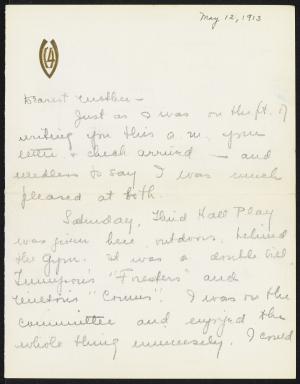 May 12, 1913
Dearest Mother -
Just as I was on the pt. of
writing you this a.m. your
letter & check arrived - and
needless to say I was much
pleased at both.
Saturday, Third Hall Play
was given here, outdoors, behind
the Gym. It was a double bill
Tennyson's "Foresters" and
"Comus". I was on the
committee and enjoyed the
whole thing immensely. I could